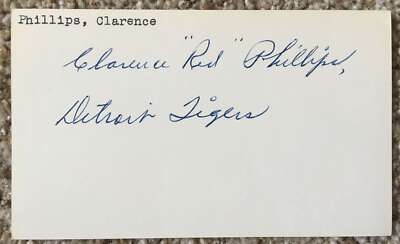 Phillips, Clarence
Clarence "Red" Phillips,
Detroit Tigers